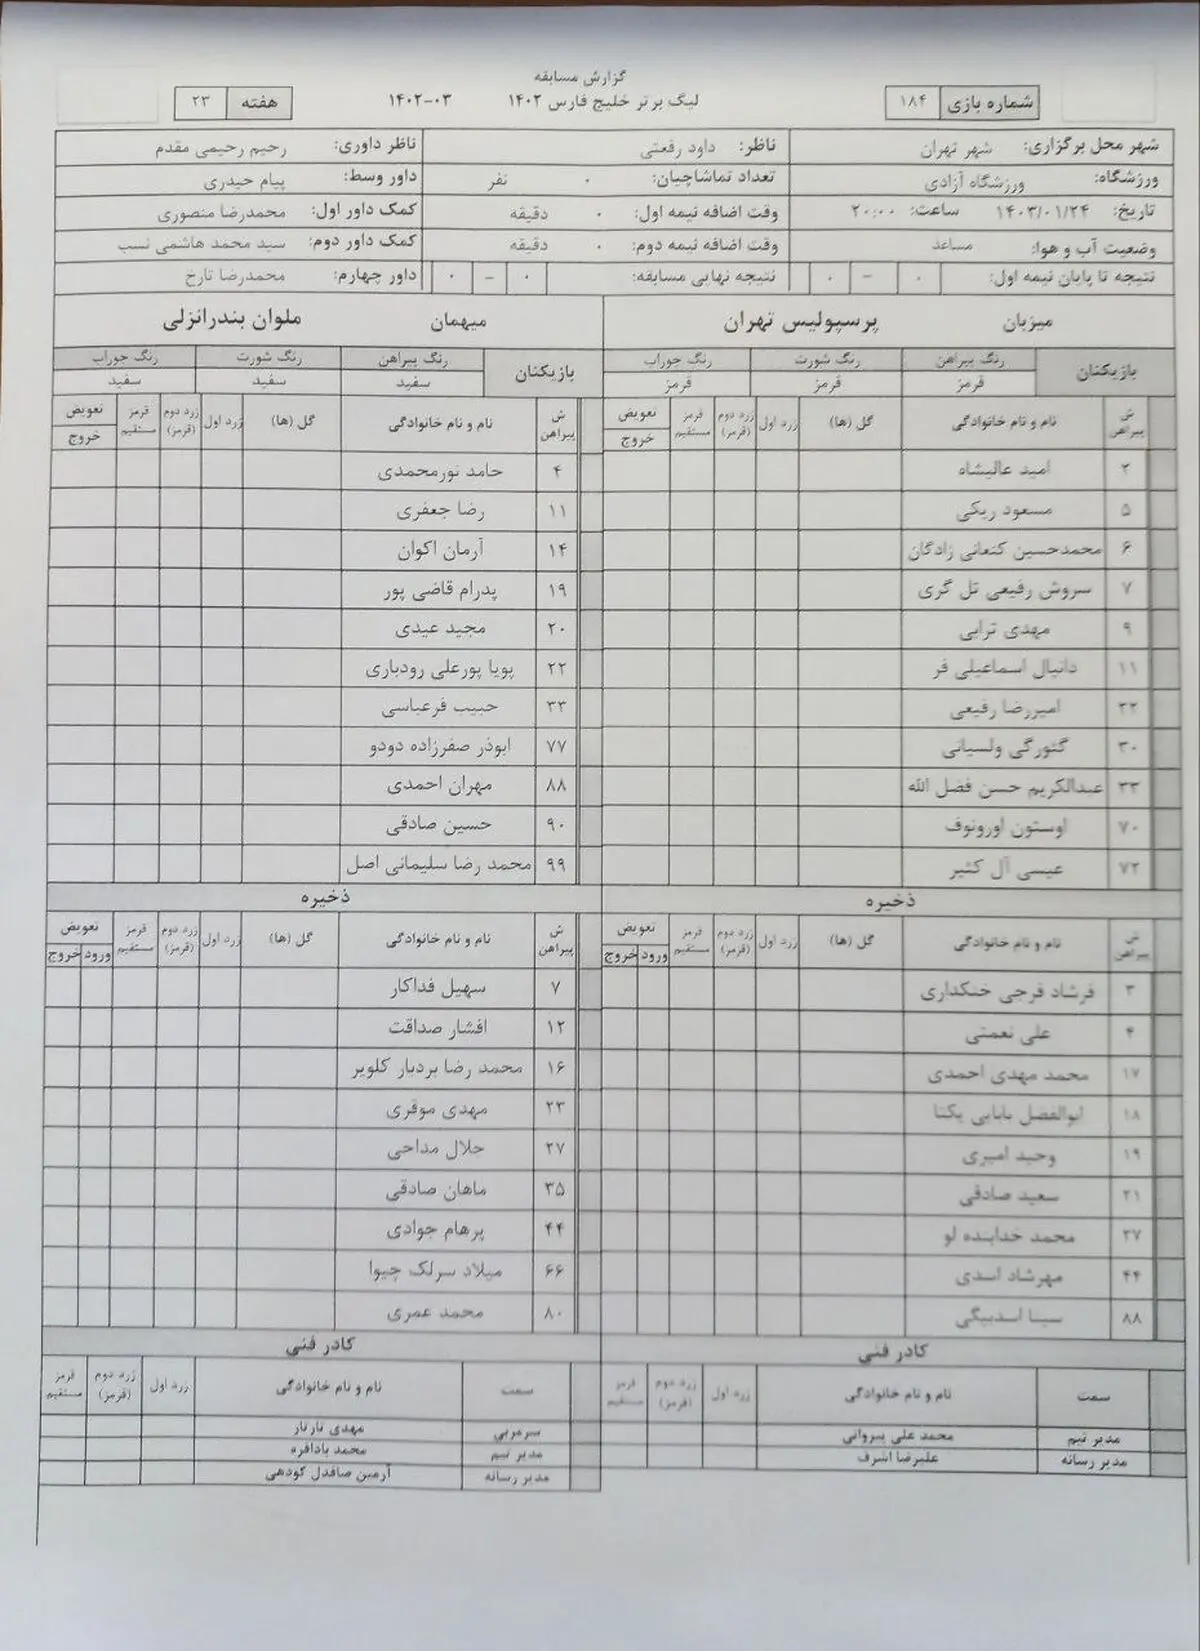 گزارش مسابقه
شماره بازی ۱۸۴ لیگ برتر خلیج فارس ۱۴۰۲ ۱۴۰۲-۰۳ هفته ۲۳
شهر محل برگزاری: شهر تهران ناظر: داود رفعتی ناظر داوری: رحیم رحیمی مقدم
ورزشگاه: ورزشگاه آزادی تعداد تماشاچیان: ۰ نفر داور وسط: پیام حیدری
تاریخ: ۱۴۰۳/۰۱/۲۴ ساعت: ۲۰:۰۰ وقت اضافه نیمه اول: ۰ دقیقه کمک داور اول: محمدرضا منصوری
وضعیت آب و هوا: مساعد وقت اضافه نیمه دوم: ۰ دقیقه کمک داور دوم: سید محمد هاشمی نسب
نتیجه تا پایان نیمه اول: ۰ - ۰ نتیجه نهایی مسابقه: ۰ - ۰ داور چهارم: محمدرضا تارخ
میزبان پرسپولیس تهران میهمان ملوان بندرانزلی
بازیکنان رنگ پیراهن رنگ شورت رنگ جوراب بازیکنان رنگ پیراهن رنگ شورت رنگ جوراب
قرمز قرمز قرمز سفید سفید سفید
ش پیراهن نام و نام خانوادگی گل (ها) زرد اول زرد دوم (قرمز) قرمز مستقیم تعویض خروج ش پیراهن نام و نام خانوادگی گل (ها) زرد اول زرد دوم (قرمز) قرمز مستقیم تعویض خروج
۲ امید عالیشاه ۴ حامد نورمحمدی
۵ مسعود ریکی ۱۱ رضا جعفری
۶ محمدحسین کنعانی زادگان ۱۴ آرمان اکوان
۷ سروش رفیعی تل گری ۱۹ پدرام قاضی پور
۹ مهدی ترابی ۲۰ مجید عیدی
۱۱ دانیال اسماعیلی فر ۲۲ پویا پورعلی رودباری
۲۲ امیررضا رفیعی ۳۳ حبیب فرعباسی
۳۰ گئورگی ولسیانی ۷۷ ابوذر صفرزاده دودو
۳۳ عبدالکریم حسن فضل الله ۸۸ مهران احمدی
۷۰ اوستون اورونوف ۹۰ حسین صادقی
۷۲ عیسی آل کثیر ۹۹ محمد رضا سلیمانی اصل
ذخیره ذخیره
ش پیراهن نام و نام خانوادگی گل (ها) زرد اول زرد دوم (قرمز) قرمز مستقیم تعویض ورود خروج ش پیراهن نام و نام خانوادگی گل (ها) زرد اول زرد دوم (قرمز) قرمز مستقیم تعویض ورود خروج
۳ فرشاد فرجی خنکداری ۷ سهیل فداکار
۴ علی نعمتی ۱۲ افشار صداقت
۱۷ محمد مهدی احمدی ۱۶ محمد رضا بردبار کلویر
۱۸ ابوالفضل بابایی یکتا ۲۳ مهدی موقری
۱۹ وحید امیری ۲۷ جلال مداحی
۲۱ سعید صادقی ۳۵ ماهان صادقی
۲۷ محمد خدابنده لو ۴۴ پرهام جوادی
۴۴ مهرشاد اسدی ۶۶ میلاد سرلک چیوا
۸۸ سینا اسدبیگی ۸۰ محمد عمری
کادر فنی کادر فنی
سمت نام و نام خانوادگی زرد اول زرد دوم (قرمز) قرمز مستقیم سمت نام و نام خانوادگی زرد اول زرد دوم (قرمز) قرمز مستقیم
مدیر تیم محمد علی پیروانی سرمربی مهدی تارتار
مدیر رسانه علیرضا اشرف مدیر تیم محمد بادافره
مدیر رسانه آرمین صافدل گودهی